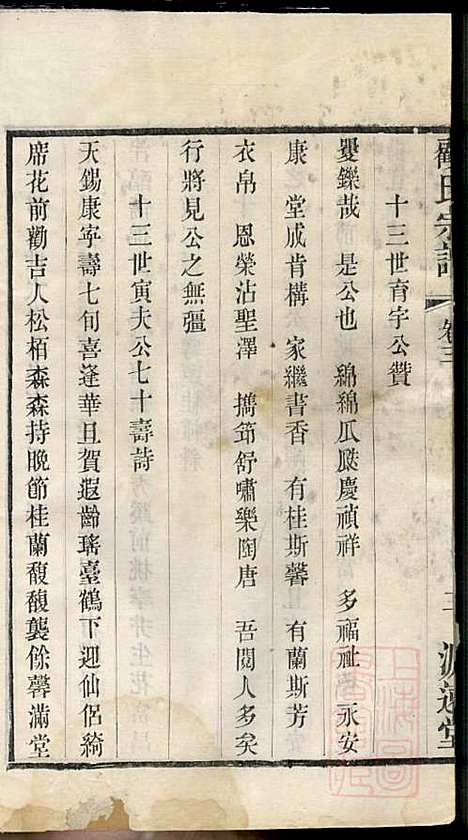 顧氏宗譜
卷三
源遠堂
十三世育宇公贊
矍鑠哉 是公也 綿綿瓜瓞慶禎祥 多福祉 永安
康 堂成肯構 家繼書香 有桂斯馨 有蘭斯芳
衣帛 恩榮沾聖澤 擕筇舒嘯樂陶唐 吾閱人多矣
行將見公之無疆
十三世寅夫公七十壽詩
天錫康寧壽七旬喜逢華旦賀遐齡瑤臺鶴下迎仙侶綺
席花前勸吉人松栢森森持晚節桂蘭馥馥襲餘馨滿堂